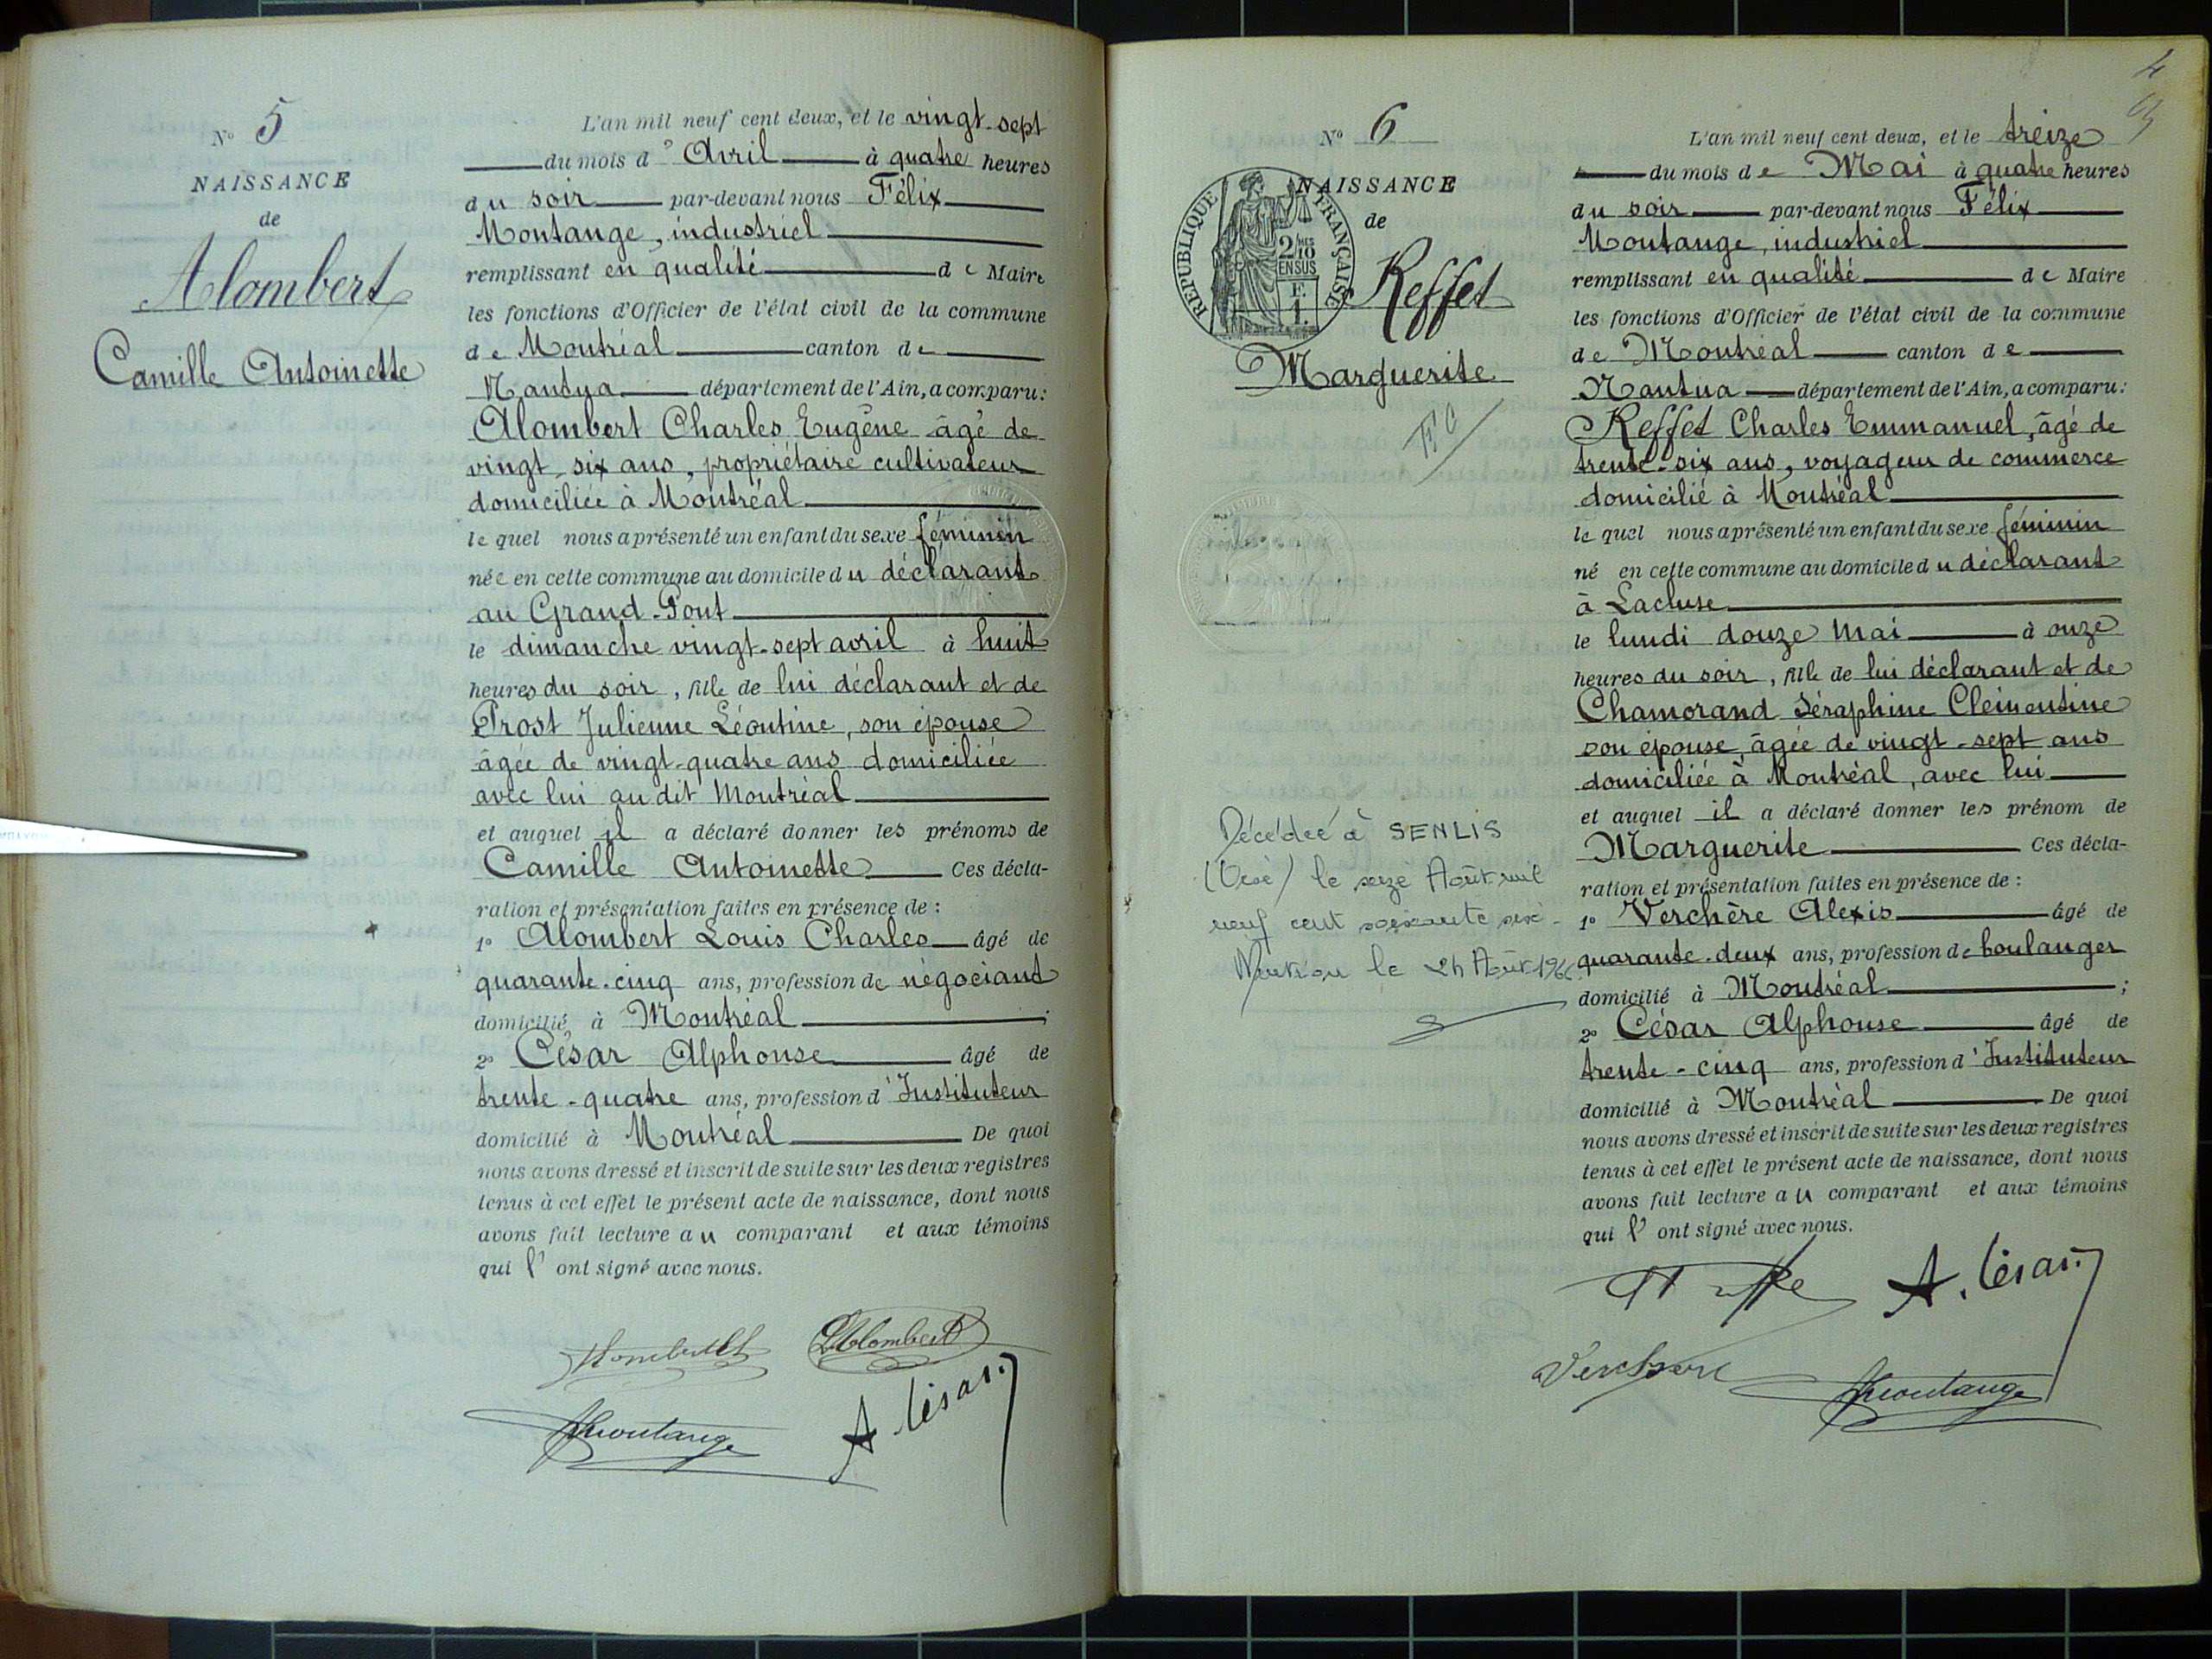 N° 5
NAISSANCE
de
Alombert
Camille Antoinette
L'an mil neuf cent deux, et le vingt-sept
du mois d'Avril à quatre heures
du soir par-devant nous Félix
Montange, industriel
remplissant en qualité de Maire
les fonctions d'Officier de l'état civil de la commune
de Montréal canton de
Nantua département de l'Ain, a comparu:
Alombert Charles Eugène âgé de
vingt-six ans, propriétaire cultivateur
domiciliée à Montréal
lequel nous a présenté un enfant du sexe féminin
née en cette commune au domicile du déclarant
au Grand-Pont
le dimanche vingt-sept avril à huit
heures du soir, fille de lui déclarant et de
Prost Julienne Léontine, son épouse
âgée de vingt-quatre ans domiciliée
avec lui au dit Montréal
et auquel il a déclaré donner les prénoms de
Camille Antoinette Ces décla-
ration et présentation faites en présence de :
1° Alombert Louis Charles âgé de
quarante-cinq ans, profession de négociand
domicilié à Montréal ;
2° César Alphonse âgé de
trente-quatre ans, profession d'Instituteur
domicilié à Montréal De quoi
nous avons dressé et inscrit de suite sur les deux registres
tenus à cet effet le présent acte de naissance, dont nous
avons fait lecture au comparant et aux témoins
qui l'ont signé avec nous.
Alombert
LAlombert
Montange
A César
4
N° 6
NAISSANCE
de
RÉPUBLIQUE FRANÇAISE
2/10 EN SUS
F. 1.
Reffet
Marguerite
Décédée à SENLIS
(Oise) le seize Août mil
neuf cent soixante six
le 24 Août 1966
L'an mil neuf cent deux, et le treize
du mois de Mai à quatre heures
du soir par-devant nous Félix
Montange, industriel
remplissant en qualité de Maire
les fonctions d'Officier de l'état civil de la commune
de Montréal canton de
Nantua département de l'Ain, a comparu:
Reffet Charles Emmanuel, âgé de
trente-six ans, voyageur de commerce
domicilié à Montréal
lequel nous a présenté un enfant du sexe féminin
né en cette commune au domicile du déclarant
à Lacluse
le lundi douze Mai à onze
heures du soir, fille de lui déclarant et de
Chamorand Séraphine Clémentine
son épouse, âgée de vingt-sept ans
domiciliée à Montréal, avec lui
et auquel il a déclaré donner les prénom de
Marguerite Ces décla-
ration et présentation faites en présence de :
1° Verchère Alexis âgé de
quarante-deux ans, profession de boulanger
domicilié à Montréal ;
2° César Alphonse âgé de
trente-cinq ans, profession d'Instituteur
domicilié à Montréal De quoi
nous avons dressé et inscrit de suite sur les deux registres
tenus à cet effet le présent acte de naissance, dont nous
avons fait lecture au comparant et aux témoins
qui l'ont signé avec nous.
A. César
Verchère
Montange